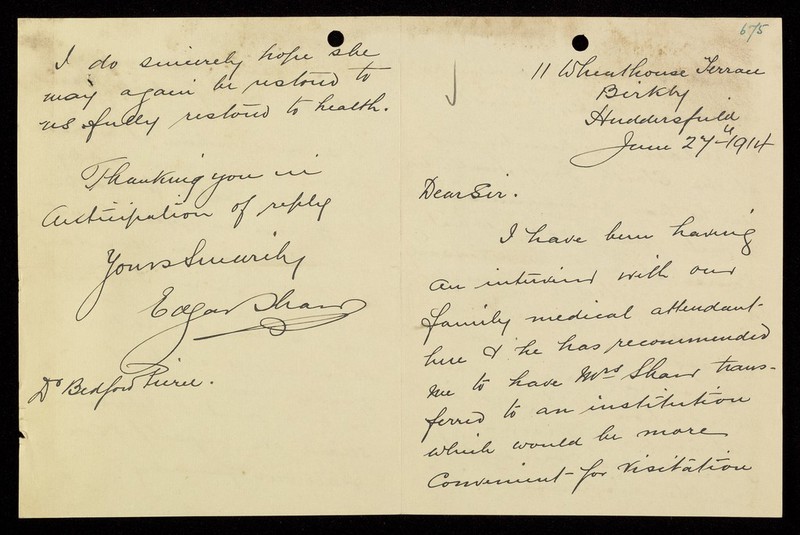 675
11 Wheathouse Terrace
Birkby
Huddersfield
June 27th 1914
Dear Sir.
I have been having
an interview with our
family medical attendant
here & he has recommended
me to have Mrs Shaw trans-
ferred to an institution
which would be more
convenient for visitation
I do sincerely hope she
may again be restored to
us fully restored to health.
Thanking you in
anticipation of reply
Yours Sincerely
Edgar Shaw
Dr Bedford Pierce.